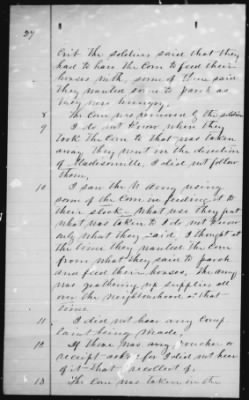 27
but the soldiers said that they
had to have the Corn to feed their
horses with, some of them said
they wanted some to parch as
they were hungry.
8 The Corn was removed by the soldiers
9 I do not know when they
took the Corn to that was taken
away they went in the direction
of Madisonville, I did not follow
them,
10 I saw the U. Army using
some of the Corn in feeding it to
their stock - What use they put
what was taken to I do not know
only what they said, I thought at
the time they wanted the Corn
from what they said to parch
and feed their horses, the army
was gathering up supplies all
over the neighborhood at that
time
11 I did not hear any Comp
laint being Made,
12 If there was any voucher or
receipt asked for I did not hear
of it that I recollect of.
13 The Corn was taken in the